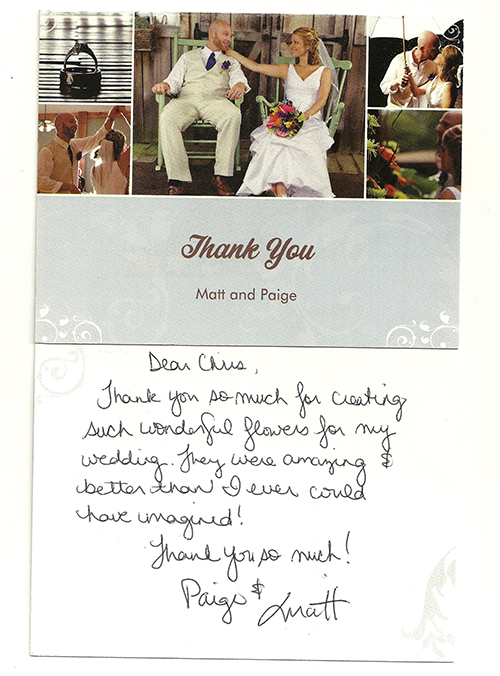 Thank You
Matt and Paige
Dear Chris,
Thank you so much for creating
such wonderful flowers for my
wedding. They were amazing &
better than I ever could
have imagined!
Thank you so much!
Paige &
Matt